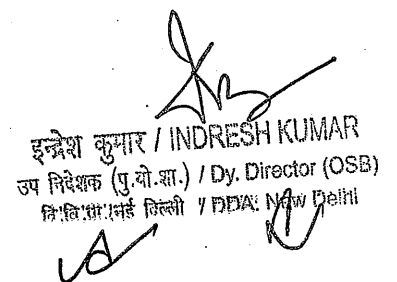 इन्द्रेश कुमार / INDRESH KUMAR
उप निदेशक (पु.यो.शा.) / Dy. Director (OSB)
दि.वि.प्रा. नई दिल्ली / DDA: New Delhi